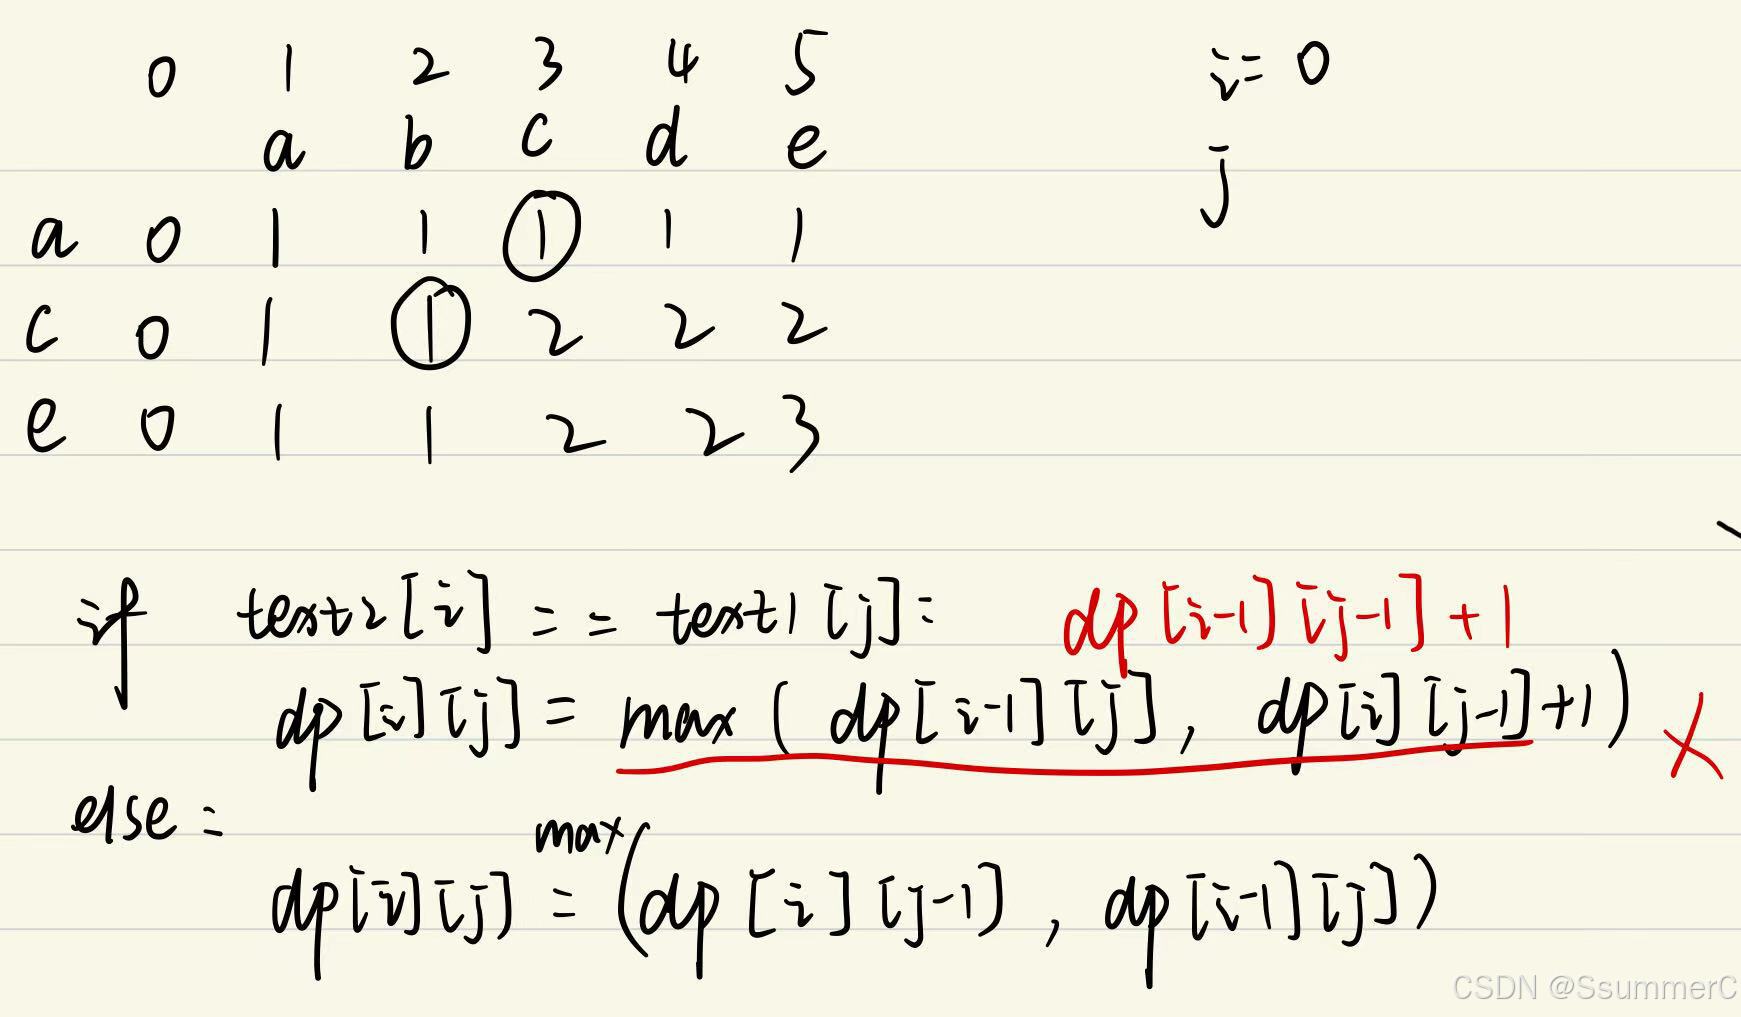 0 1 2 3 4 5 i= 0
a b c d e j
a 0 1 1 1 1 1
c 0 1 1 2 2 2
e 0 1 1 2 2 3
if text2[i] == text1[j]: dp[i-1][j-1]+1
dp[i][j] = max(dp[i-1][j], dp[i][j-1]+1) X
else:
dp[i][j] = max(dp[i][j-1], dp[i-1][j])
CSDN @SsummerC